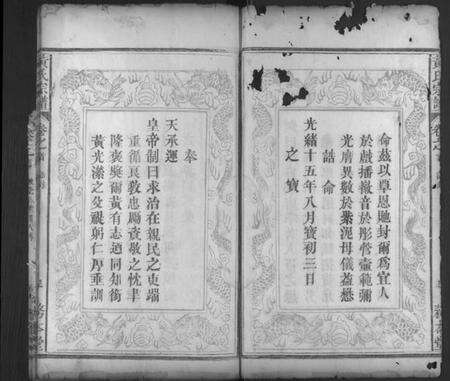 命茲以覃恩貤封爾為宜人
於戲播徽音於彤管壼範彌
光膺異數於紫泥母儀益懋
誥命
光緒十五年八月寶初三日
之寶
奉
天承運
皇帝制曰求治在親民之吏端
重循良教忠勵資敬之忱聿
隆褒奬爾黃有志迺同知銜
黃光溁之父禔躬仁厚垂訓
黃氏宗譜
卷之首